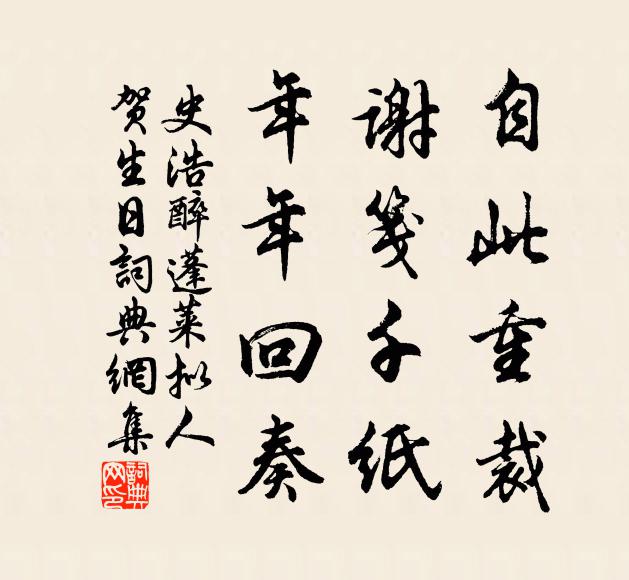 自此重裁
谢笺千纸
年年回奏
史浩醉蓬莱拟人
贺生日詞典網集
詞典网印